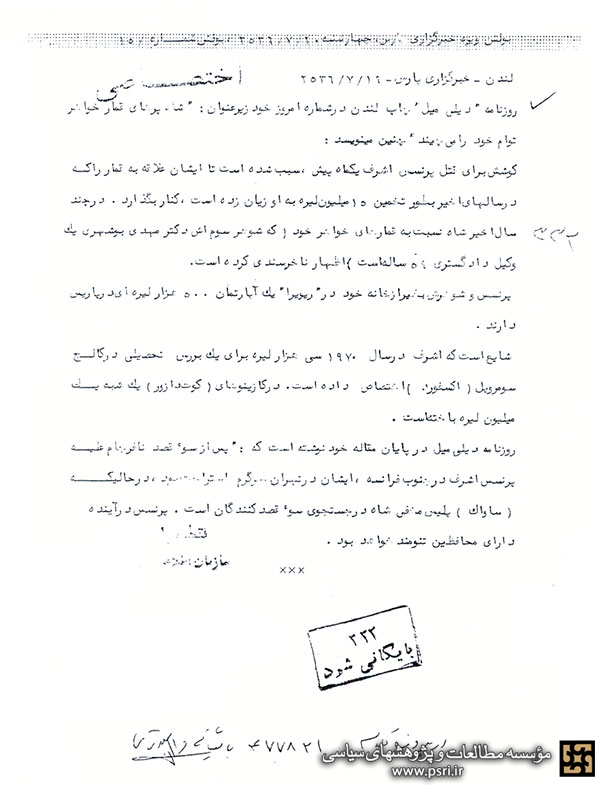 بولتن ویژه خبرگزاری پارس، چهارشنبه ، بولتن شماره
اختصاصی
لندن - خبرگزاری پارس - ۲۵۳۶/۷/۱۶
روزنامه "دیلی میل" چاپ لندن در شماره امروز خود زیرعنوان : " شاه پولهای قمار خواهر
توام خود را می بندد " چنین مینویسد :
کوشش برای قتل پرنسس اشرف یکماه پیش ، سبب شده است تا ایشان علاقه به قمار را که
در سالهای اخیر بطور تخمین ۱۵ میلیون لیره به او زیان زده است ، کنار بگذارد . در چند
سال اخیر شاه نسبت به قمارهای خواهر خود ( که شوهر سوم اش دکتر مهدی بوشهری یک
وکیل دادگستری ساله است ) اظهار ناخرسندی کرده است .
پرنسس و شوهرش بغیر از خانه خود در "ریویرا" یک آپارتمان ۵۰۰ هزار لیره ای در پاریس
دارند .
شایع است که اشرف در سال ۱۹۷۰ سی هزار لیره برای یک بورس تحصیلی در کالج
سومرویل ( اکسفورد ) اختصاص داده است . در کازینوهای ( کوت دازور ) یک شبه یک
میلیون لیره باخته است .
روزنامه دیلی میل در پایان مقاله خود نوشته است که : " پس از سوء قصد نافرجام علیه
پرنسس اشرف در جنوب فرانسه ، ایشان در تهران سرگرم استراحت بود ، در حالیکه
( ساواک ) پلیس مخفی شاه در جستجوی سوء قصد کنندگان است . پرنسس در آینده
دارای محافظین تنومند خواهد بود .
سازمان اطلاعات
×××
۳۳۲
بایگانی شود
۴۷۷۸۲۱
مؤسسه مطالعات و پژوهشهای سیاسی
www.psri.ir